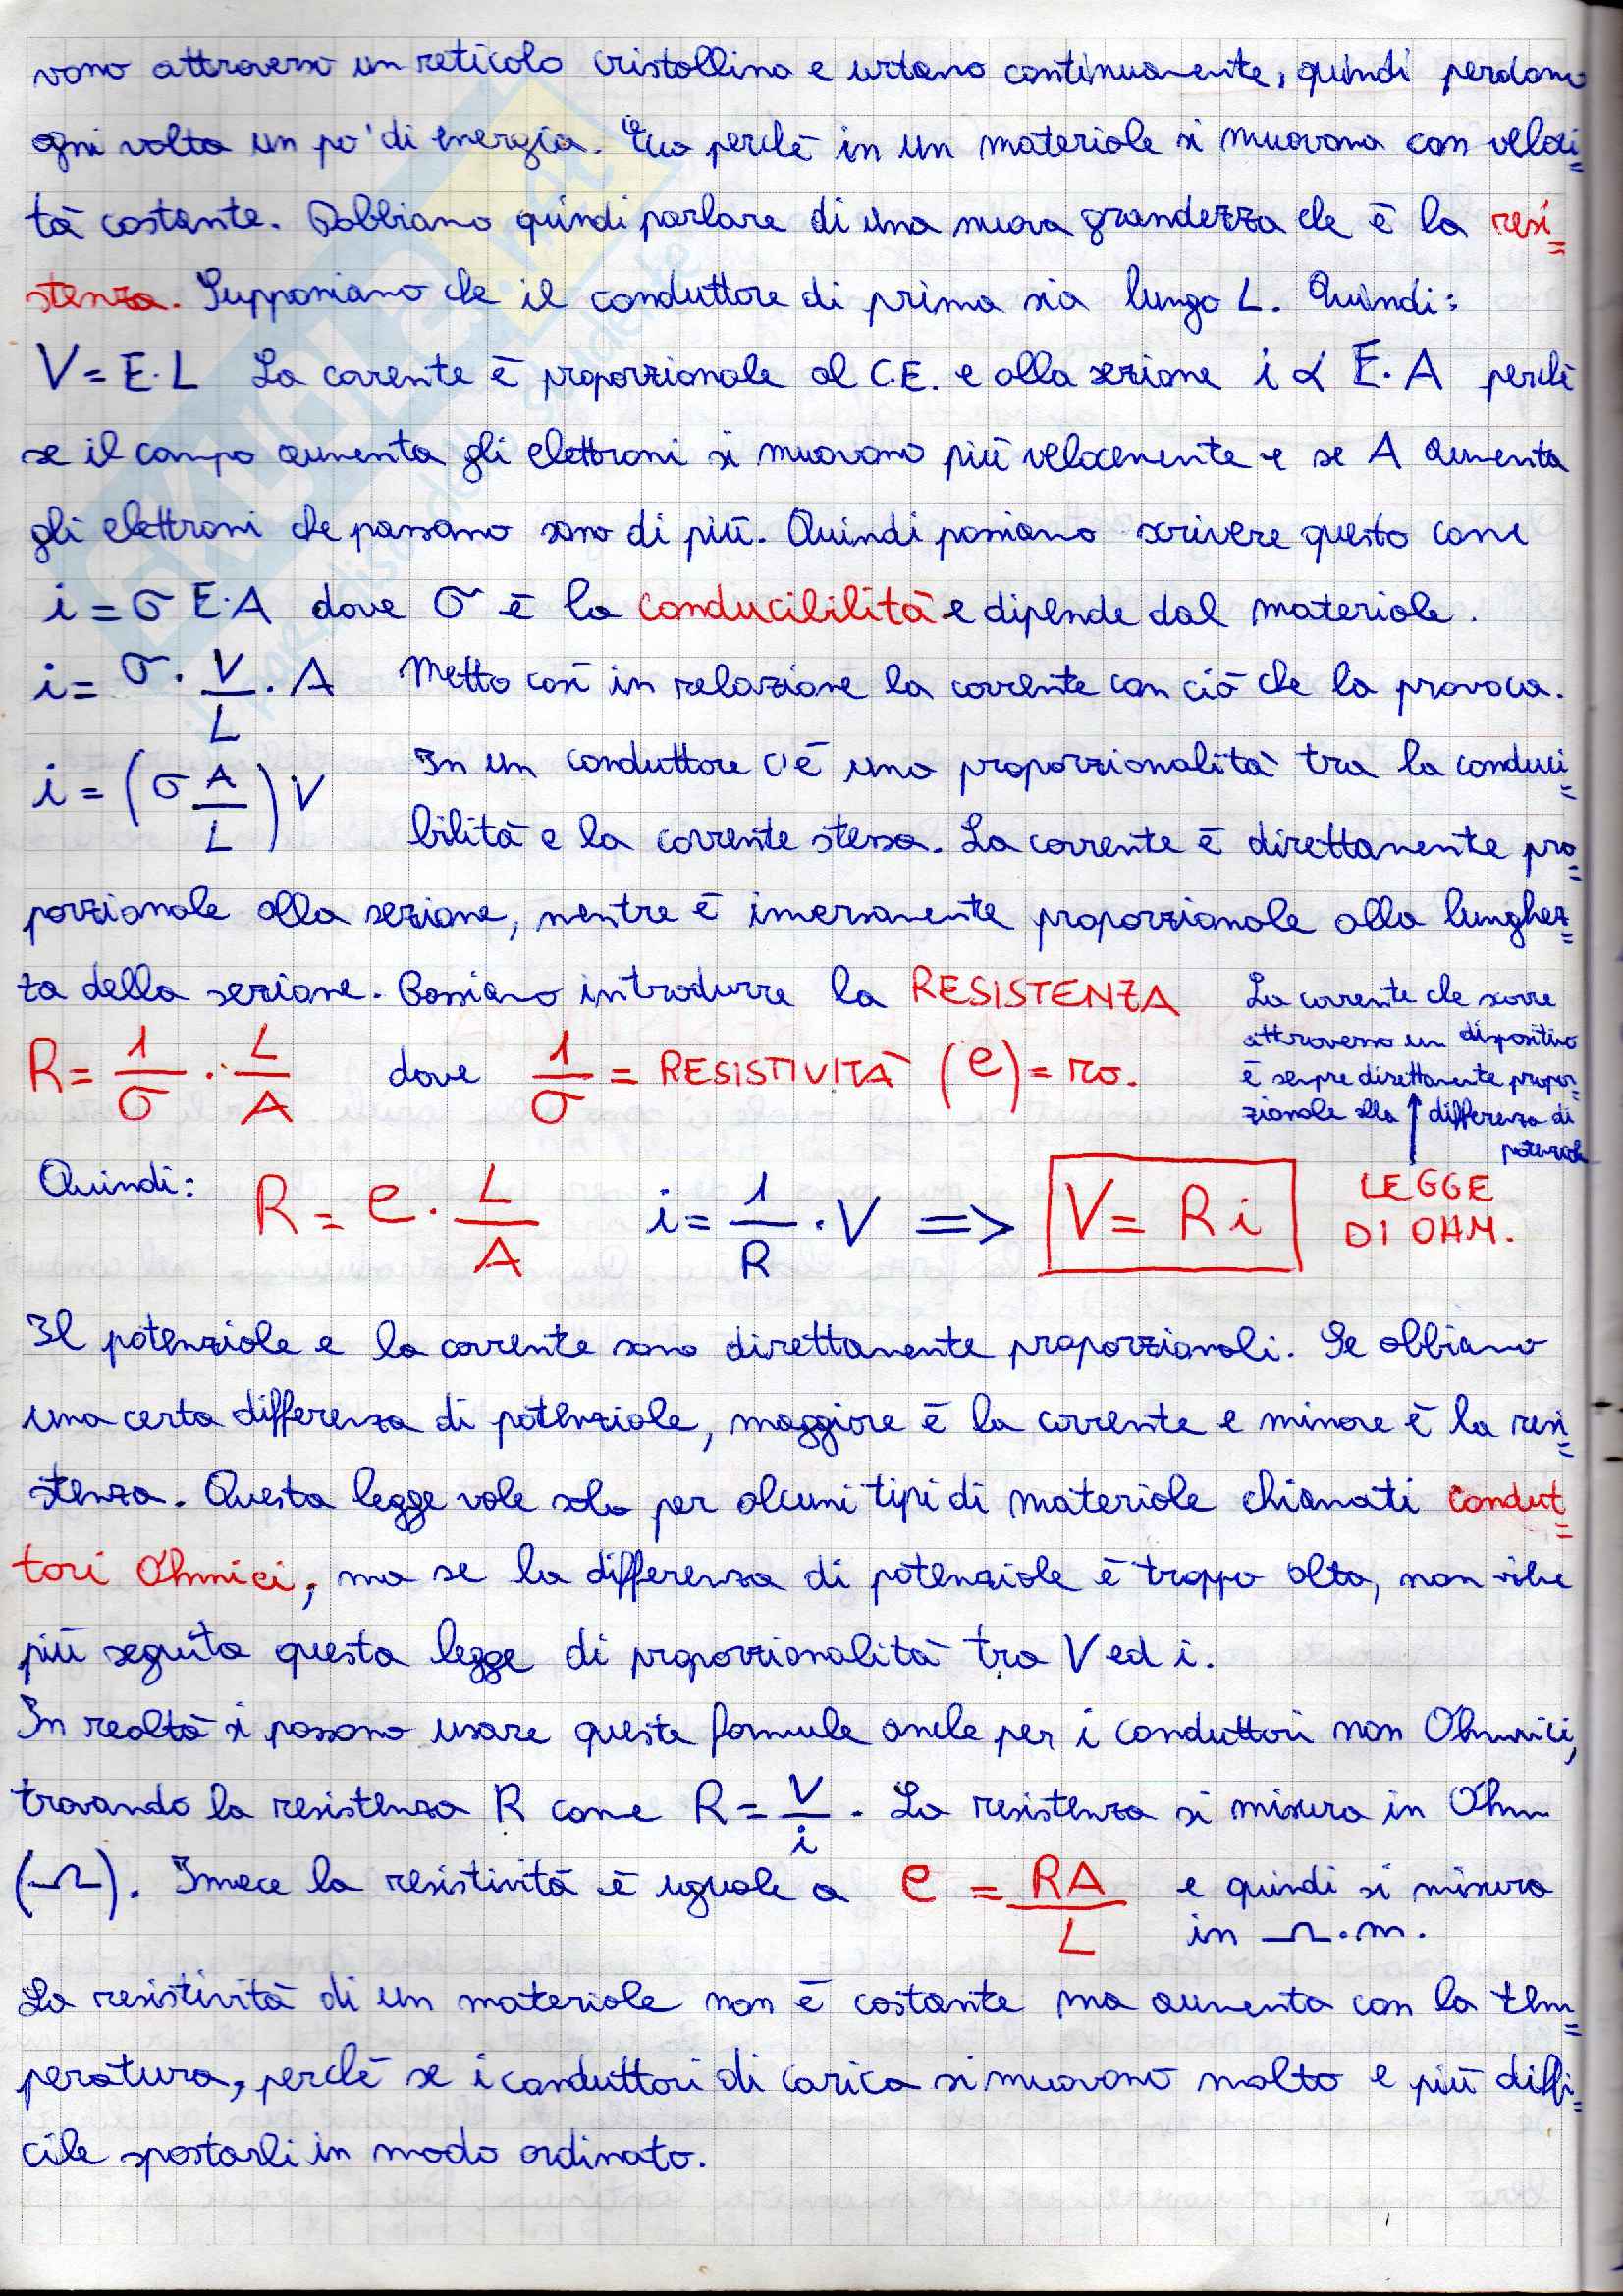 vono attraverso un reticolo cristallino e urtano continuamente, quindi perdono
ogni volta un po' di energia. Ecco perchè in un materiale si muovono con veloci=
tà costante. Dobbiamo quindi parlare di una nuova grandezza che è la resi=
stenza. Supponiamo che il conduttore di prima sia lungo L. Quindi:
V = E·L La corrente è proporzionale al C.E. e alla sezione i α E·A perchè
se il campo aumenta gli elettroni si muovono più velocemente e se A aumenta
gli elettroni che passano sono di più. Quindi possiamo scrivere questo come
i = σ E·A dove σ è la conducibilità e dipende dal materiale.
i = σ · V/L · A Metto così in relazione la corrente con ciò che la provoca.
i = (σ A/L) V In un conduttore c'è una proporzionalità tra la conduci=
bilità e la corrente stessa. La corrente è direttamente pro=
porzionale alla sezione, mentre è inversamente proporzionale alla lunghez=
za della sezione. Possiamo introdurre la RESISTENZA
R = 1/σ · L/A dove 1/σ = RESISTIVITÀ (ρ) = ro.
La corrente che scorre
attraverso un dispositivo
è sempre direttamente propor=
zionale alla differenza di
potenziale
Quindi: R = ρ · L/A i = 1/R · V => V = R i LEGGE
DI OHM.
Il potenziale e la corrente sono direttamente proporzionali. Se abbiamo
una certa differenza di potenziale, maggiore è la corrente e minore è la resi=
stenza. Questa legge vale solo per alcuni tipi di materiale chiamati condut=
tori Ohmici, ma se la differenza di potenziale è troppo alta, non viene
più seguita questa legge di proporzionalità tra V ed i.
In realtà si possono usare queste formule anche per i conduttori non Ohmici,
trovando la resistenza R come R = V/i. La resistenza si misura in Ohm
(Ω). Invece la resistività è uguale a ρ = RA/L e quindi si misura
in Ω·m.
La resistività di un materiale non è costante ma aumenta con la tem=
peratura, perchè se i conduttori di carica si muovono molto e più diffi=
cile spostarli in modo ordinato.